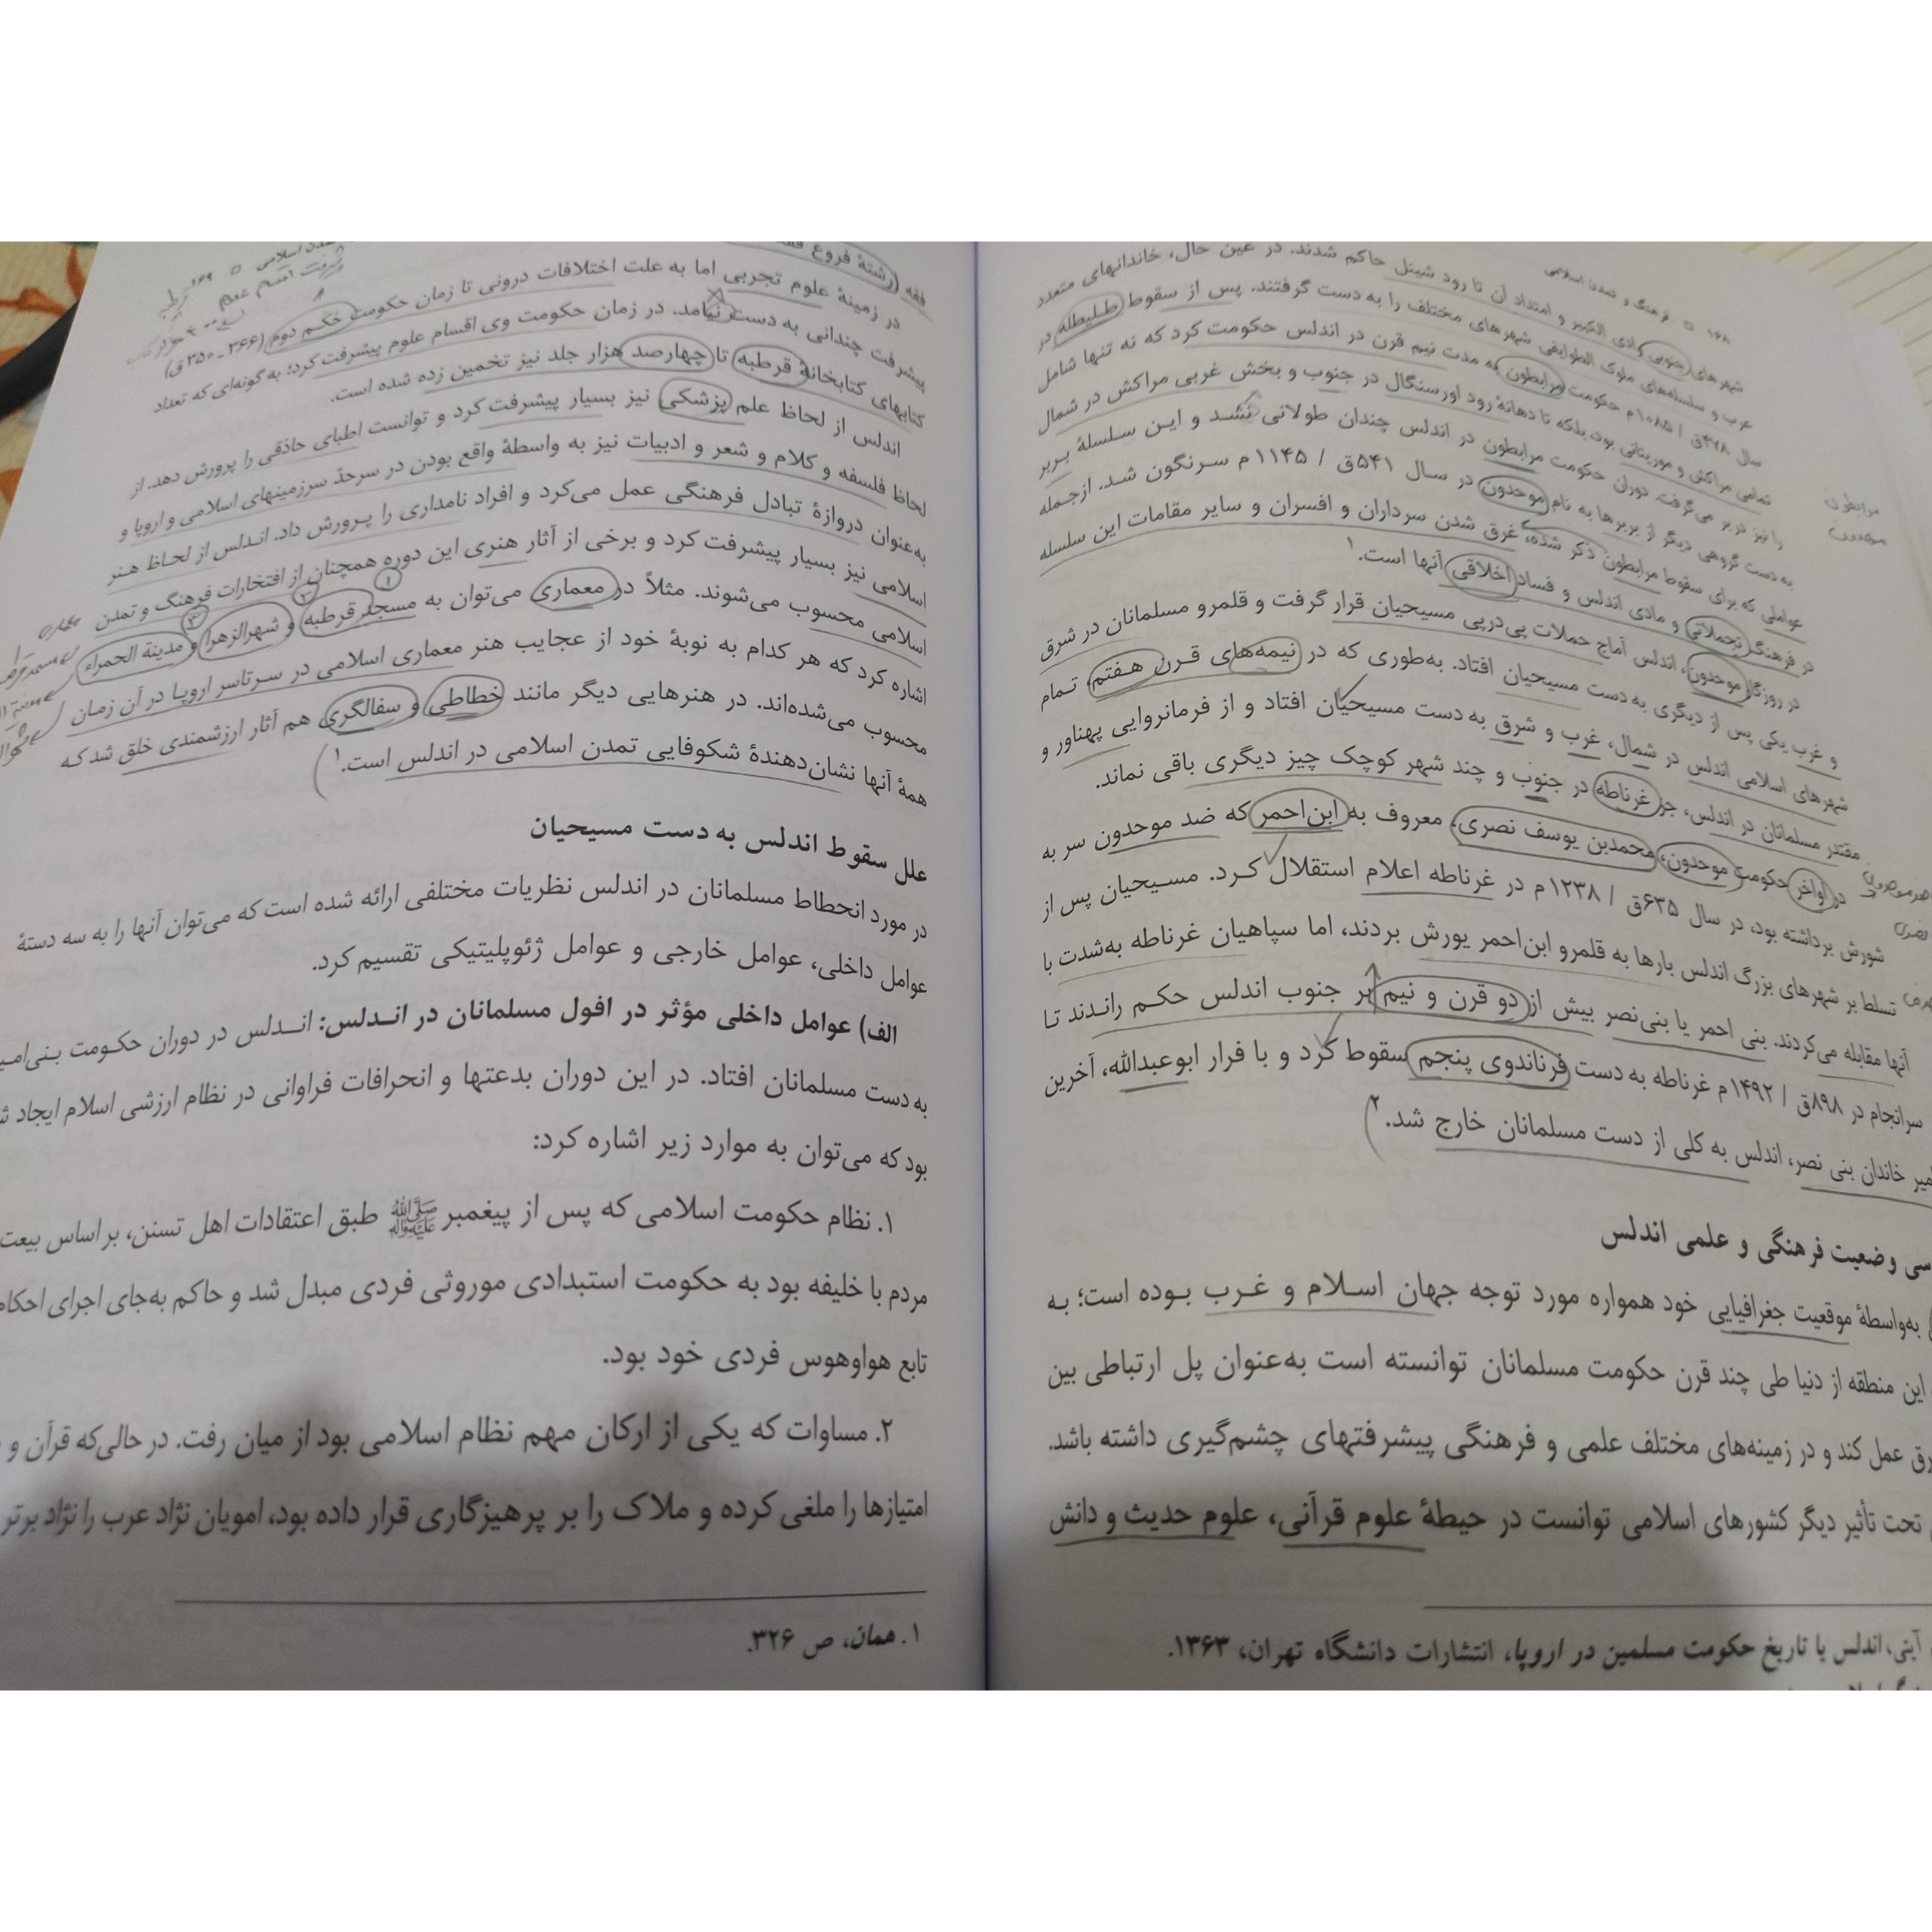 ۱۶۸ □ فرهنگ و تمدن اسلامی
شهرهای جنوبی وادی الکبیر و امتداد آن تا رود شینل حاکم شدند. در عین حال، خاندانهای متعدد
عرب و سلسله‌های ملوک الطوایفی شهرهای مختلف را به دست گرفتند. پس از سقوط طلیطله در
سال ۴۷۸ق / ۱۰۸۵م حکومت مرابطون به مدت نیم قرن در اندلس حکومت کرد که نه تنها شامل
تمامی مراکش و موریتانی بود، بلکه تا دهانهٔ رود اورسنگال در جنوب و بخش غربی مراکش در شمال
را نیز دربر می‌گرفت. دوران حکومت مرابطون در اندلس چندان طولانی نشد و این سلسلهٔ بربر
به دست گروهی دیگر از بربرها به نام موحدون در سال ۵۴۱ق / ۱۱۴۵م سرنگون شد. ازجمله
عواملی که برای سقوط مرابطون ذکر شده، غرق شدن سرداران و افسران و سایر مقامات این سلسله
در فرهنگ تجملاتی و مادی اندلس و فساد اخلاقی آنها است.۱
در روزگار موحدون، اندلس آماج حملات پی‌درپی مسیحیان قرار گرفت و قلمرو مسلمانان در شرق
و غرب یکی پس از دیگری به دست مسیحیان افتاد. به‌طوری که در نیمه‌های قرن هفتم تمام
شهرهای اسلامی اندلس در شمال، غرب و شرق به دست مسیحیان افتاد و از فرمانروایی پهناور و
مقتدر مسلمانان در اندلس، جز غرناطه در جنوب و چند شهر کوچک چیز دیگری باقی نماند.
در اواخر حکومت موحدون، محمدبن یوسف نصری، معروف به ابن‌احمر که ضد موحدون سر به
شورش برداشته بود، در سال ۶۳۵ق / ۱۲۳۸م در غرناطه اعلام استقلال کرد. مسیحیان پس از
تسلط بر شهرهای بزرگ اندلس بارها به قلمرو ابن‌احمر یورش بردند، اما سپاهیان غرناطه به‌شدت با
آنها مقابله می‌کردند. بنی احمر یا بنی‌نصر بیش از دو قرن و نیم بر جنوب اندلس حکم راندند تا
سرانجام در ۸۹۸ق / ۱۴۹۲م غرناطه به دست فرناندوی پنجم سقوط کرد و با فرار ابوعبدالله، آخرین
میر خاندان بنی نصر، اندلس به کلی از دست مسلمانان خارج شد.۲
سی وضعیت فرهنگی و علمی اندلس
به‌واسطهٔ موقعیت جغرافیایی خود همواره مورد توجه جهان اسلام و غرب بوده است؛ به
این منطقه از دنیا طی چند قرن حکومت مسلمانان توانسته است به‌عنوان پل ارتباطی بین
رق عمل کند و در زمینه‌های مختلف علمی و فرهنگی پیشرفتهای چشم‌گیری داشته باشد.
تحت تأثیر دیگر کشورهای اسلامی توانست در حیطهٔ علوم قرآنی، علوم حدیث و دانش
آیتی، اندلس یا تاریخ حکومت مسلمین در اروپا، انتشارات دانشگاه تهران، ۱۳۶۳.
مرابطون
موحدون
نصری
تمدن اسلامی □ ۱۶۹
فقه (رشتهٔ فروع فقه
در زمینهٔ علوم تجربی اما به علت اختلافات درونی تا زمان حکومت حَکَم دوم (۳۶۶ـ۳۵۰ق)
پیشرفت چندانی به دست نیامد. در زمان حکومت وی اقسام علوم پیشرفت کرد؛ به گونه‌ای که تعداد
کتابهای کتابخانهٔ قرطبه تا چهارصد هزار جلد نیز تخمین زده شده است.
اندلس از لحاظ علم پزشکی نیز بسیار پیشرفت کرد و توانست اطبای حاذقی را پرورش دهد. از
لحاظ فلسفه و کلام و شعر و ادبیات نیز به واسطهٔ واقع بودن در سرحدّ سرزمینهای اسلامی و اروپا و
به‌عنوان دروازهٔ تبادل فرهنگی عمل می‌کرد و افراد نامداری را پرورش داد. اندلس از لحاظ هنر
اسلامی نیز بسیار پیشرفت کرد و برخی از آثار هنری این دوره همچنان از افتخارات فرهنگ و تمدن
اسلامی محسوب می‌شوند. مثلاً در معماری می‌توان به مسجد قرطبه و شهرالزهرا و مدینة الحمراء
اشاره کرد که هر کدام به نوبهٔ خود از عجایب هنر معماری اسلامی در سرتاسر اروپا در آن زمان
محسوب می‌شده‌اند. در هنرهایی دیگر مانند خطاطی و سفالگری هم آثار ارزشمندی خلق شد که
همهٔ آنها نشان‌دهندهٔ شکوفایی تمدن اسلامی در اندلس است.۱
علل سقوط اندلس به دست مسیحیان
در مورد انحطاط مسلمانان در اندلس نظریات مختلفی ارائه شده است که می‌توان آنها را به سه دستهٔ
عوامل داخلی، عوامل خارجی و عوامل ژئوپلیتیکی تقسیم کرد.
الف) عوامل داخلی مؤثر در افول مسلمانان در اندلس: اندلس در دوران حکومت بنی‌امیـ
به دست مسلمانان افتاد. در این دوران بدعتها و انحرافات فراوانی در نظام ارزشی اسلام ایجاد
بود که می‌توان به موارد زیر اشاره کرد:
۱. نظام حکومت اسلامی که پس از پیغمبر ﷺ طبق اعتقادات اهل تسنن، بر اساس بیعت
مردم با خلیفه بود به حکومت استبدادی موروثی فردی مبدل شد و حاکم به‌جای اجرای احکام
تابع هواوهوس فردی خود بود.
۲. مساوات که یکی از ارکان مهم نظام اسلامی بود از میان رفت. در حالی‌که قرآن و
امتیازها را ملغی کرده و ملاک را بر پرهیزگاری قرار داده بود، امویان نژاد عرب را نژاد برتر
۱. همان، ص ۳۲۶.